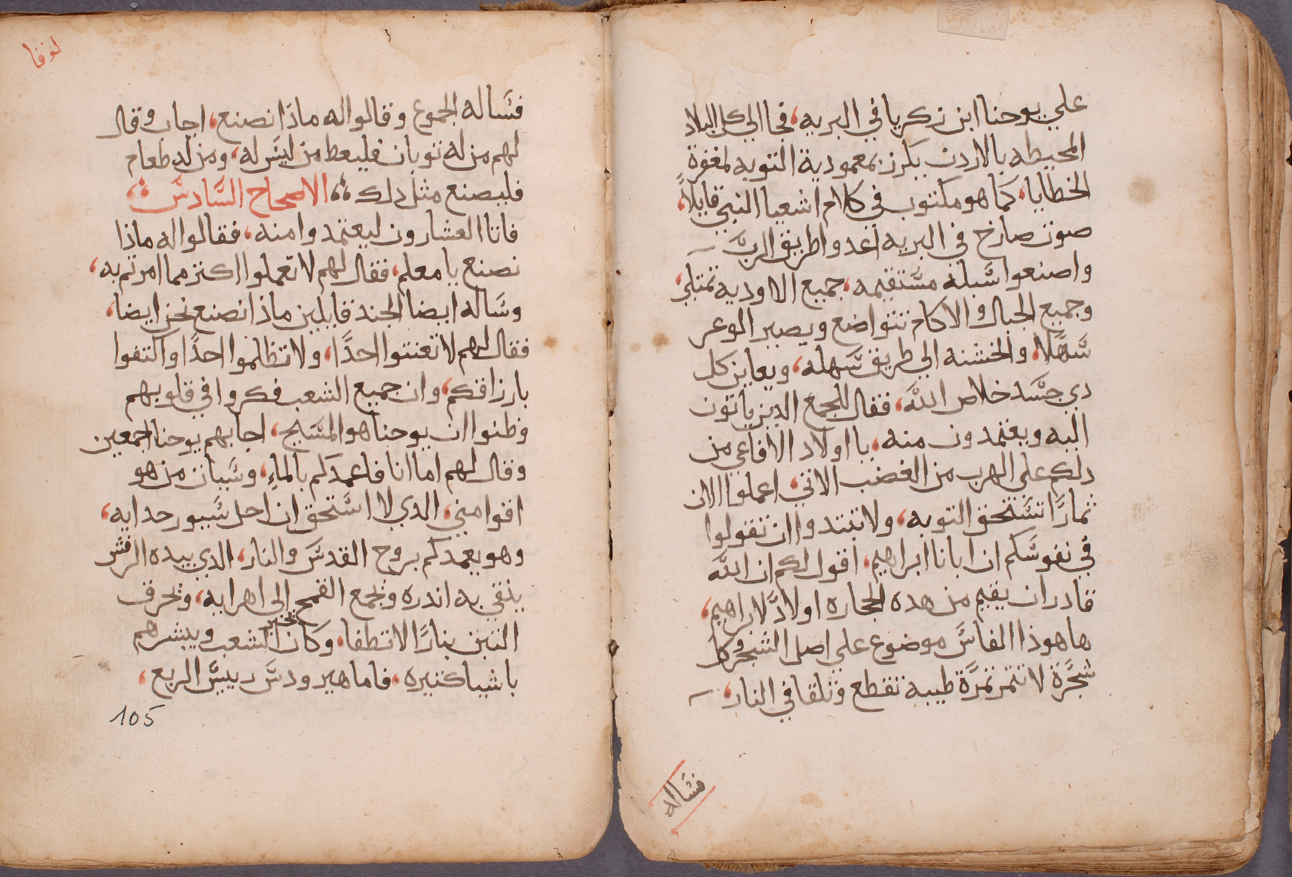 علي يوحنا ابن زكريا في البريه، فجا الي كل البلاد
المحيطه بالاردن يكرز بمعمودية التوبه لمغفرة
الخطايا، كما هو مكتوب في كلام اشعيا النبي قايلاً،
صوت صارخ في البريه اعدوا طريق الرب
واصنعوا سبله مستقيمه، جميع الاوديه تمتلي،
وجميع الجبال والاكام تتواضع ويصير الوعر
سهلا، والخشنه الي طريق سهله، ويعاين كل
دي جسد خلاص الله، فقال للجمع الدين ياتون
اليه ويعتمدون منه، يا اولاد الافاعي من
دلكم علي الهرب من الغضب الاتي، اعملوا الان
ثمارًا تستحق التوبه، ولا تبتدوا ان تقولوا
في نفوسكم ان ابانا ابراهيم، اقول لكم ان الله
قادر ان يقيم من هده الحجاره اولادًا لابراهيم،
ها هودا الفاس موضوع علي اصل الشجر وكل
شجرة لا تتمر تمرة طيبه تقطع وتلقا في النار،
فساله
لوقا
فساله الجموع وقالوا له مادا نصنع، اجاب وقال
لهم من له توبان فليعط من ليس له، ومن له طعام
فليصنع مثل دلك الاصحاح السادس
فاتا العشارون ليعتمدوا منه، فقالوا له مادا
نصنع يا معلم، فقال لهم لا تعملوا اكتر مما امرتم به،
وساله ايضا الجند قايلين مادا نصنع نحن ايضا،
فقال لهم لا تعنتوا احدًا، ولا تظلموا احدًا واكتفوا
بارزاقكم، وان جميع الشعب فكروا في قلوبهم
وظنوا ان يوحنا هو المسيح، اجابهم يوحنا اجمعين
وقال لهم اما انا فاعمدكم بالماء، وسيات من هو
اقوا مني، الدي لا استحق ان احل سيور حدايه،
وهو يعمدكم بروح القدس والنار، الدي بيده الرفش
ينقي به اندره ويجمع القمح الي اهرايه، ويحرق
التبن بنارًا لا تطفا، وكان يخبر الشعب ويبشرهم
باشيا كتيره، فاما هيرودس رييس الربع،
105